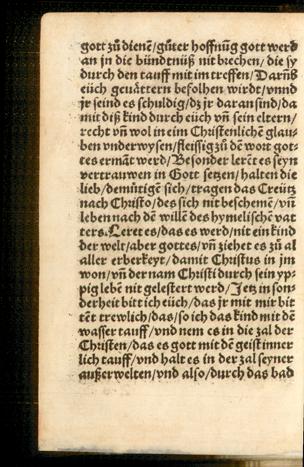 gott zů dienē/gůter hoffnūg gott werd
an jn die bündtnüß nit brechen/die sy
durch den tauff mit im treffen/Darūb
eüch geuättern befolhen wirdt/vnnd
jr seind es schuldig/dz jr daran sind/da
mit diß kind durch eüch vn̄ sein eltern/
recht vn̄ wol in eim Christenlichē glau-
ben vnderwysen/fleissig zů dē wort got-
tes ermāt werd/Besonder lerēt es seyn
vertrauwen in Gott setzen/halten die
lieb/demütigē sich/tragen das Creütz
nach Christo/des sich nit beschemē/vn̄
leben nach dē willē des hymelischē vat
ters. Leret es/das es werd/nit ein kind
der welt/aber gottes/vn̄ ziehet es zů al
aller erberkeyt/damit Christus in jm
won/vn̄ der nam Christi durch sein yp-
pig lebē nit gelestert werd/Jetz in son-
derheit bitt ich eüch/das jr mit mir bit
tēt trewlich/das/so ich das kind mit dē
wasser tauff/vnd nem es in die zal der
Christen/das es gott mit dē geist inner
lich tauff/vnd halt es in der zal seyner
außerwelten/vnd also/durch das bad